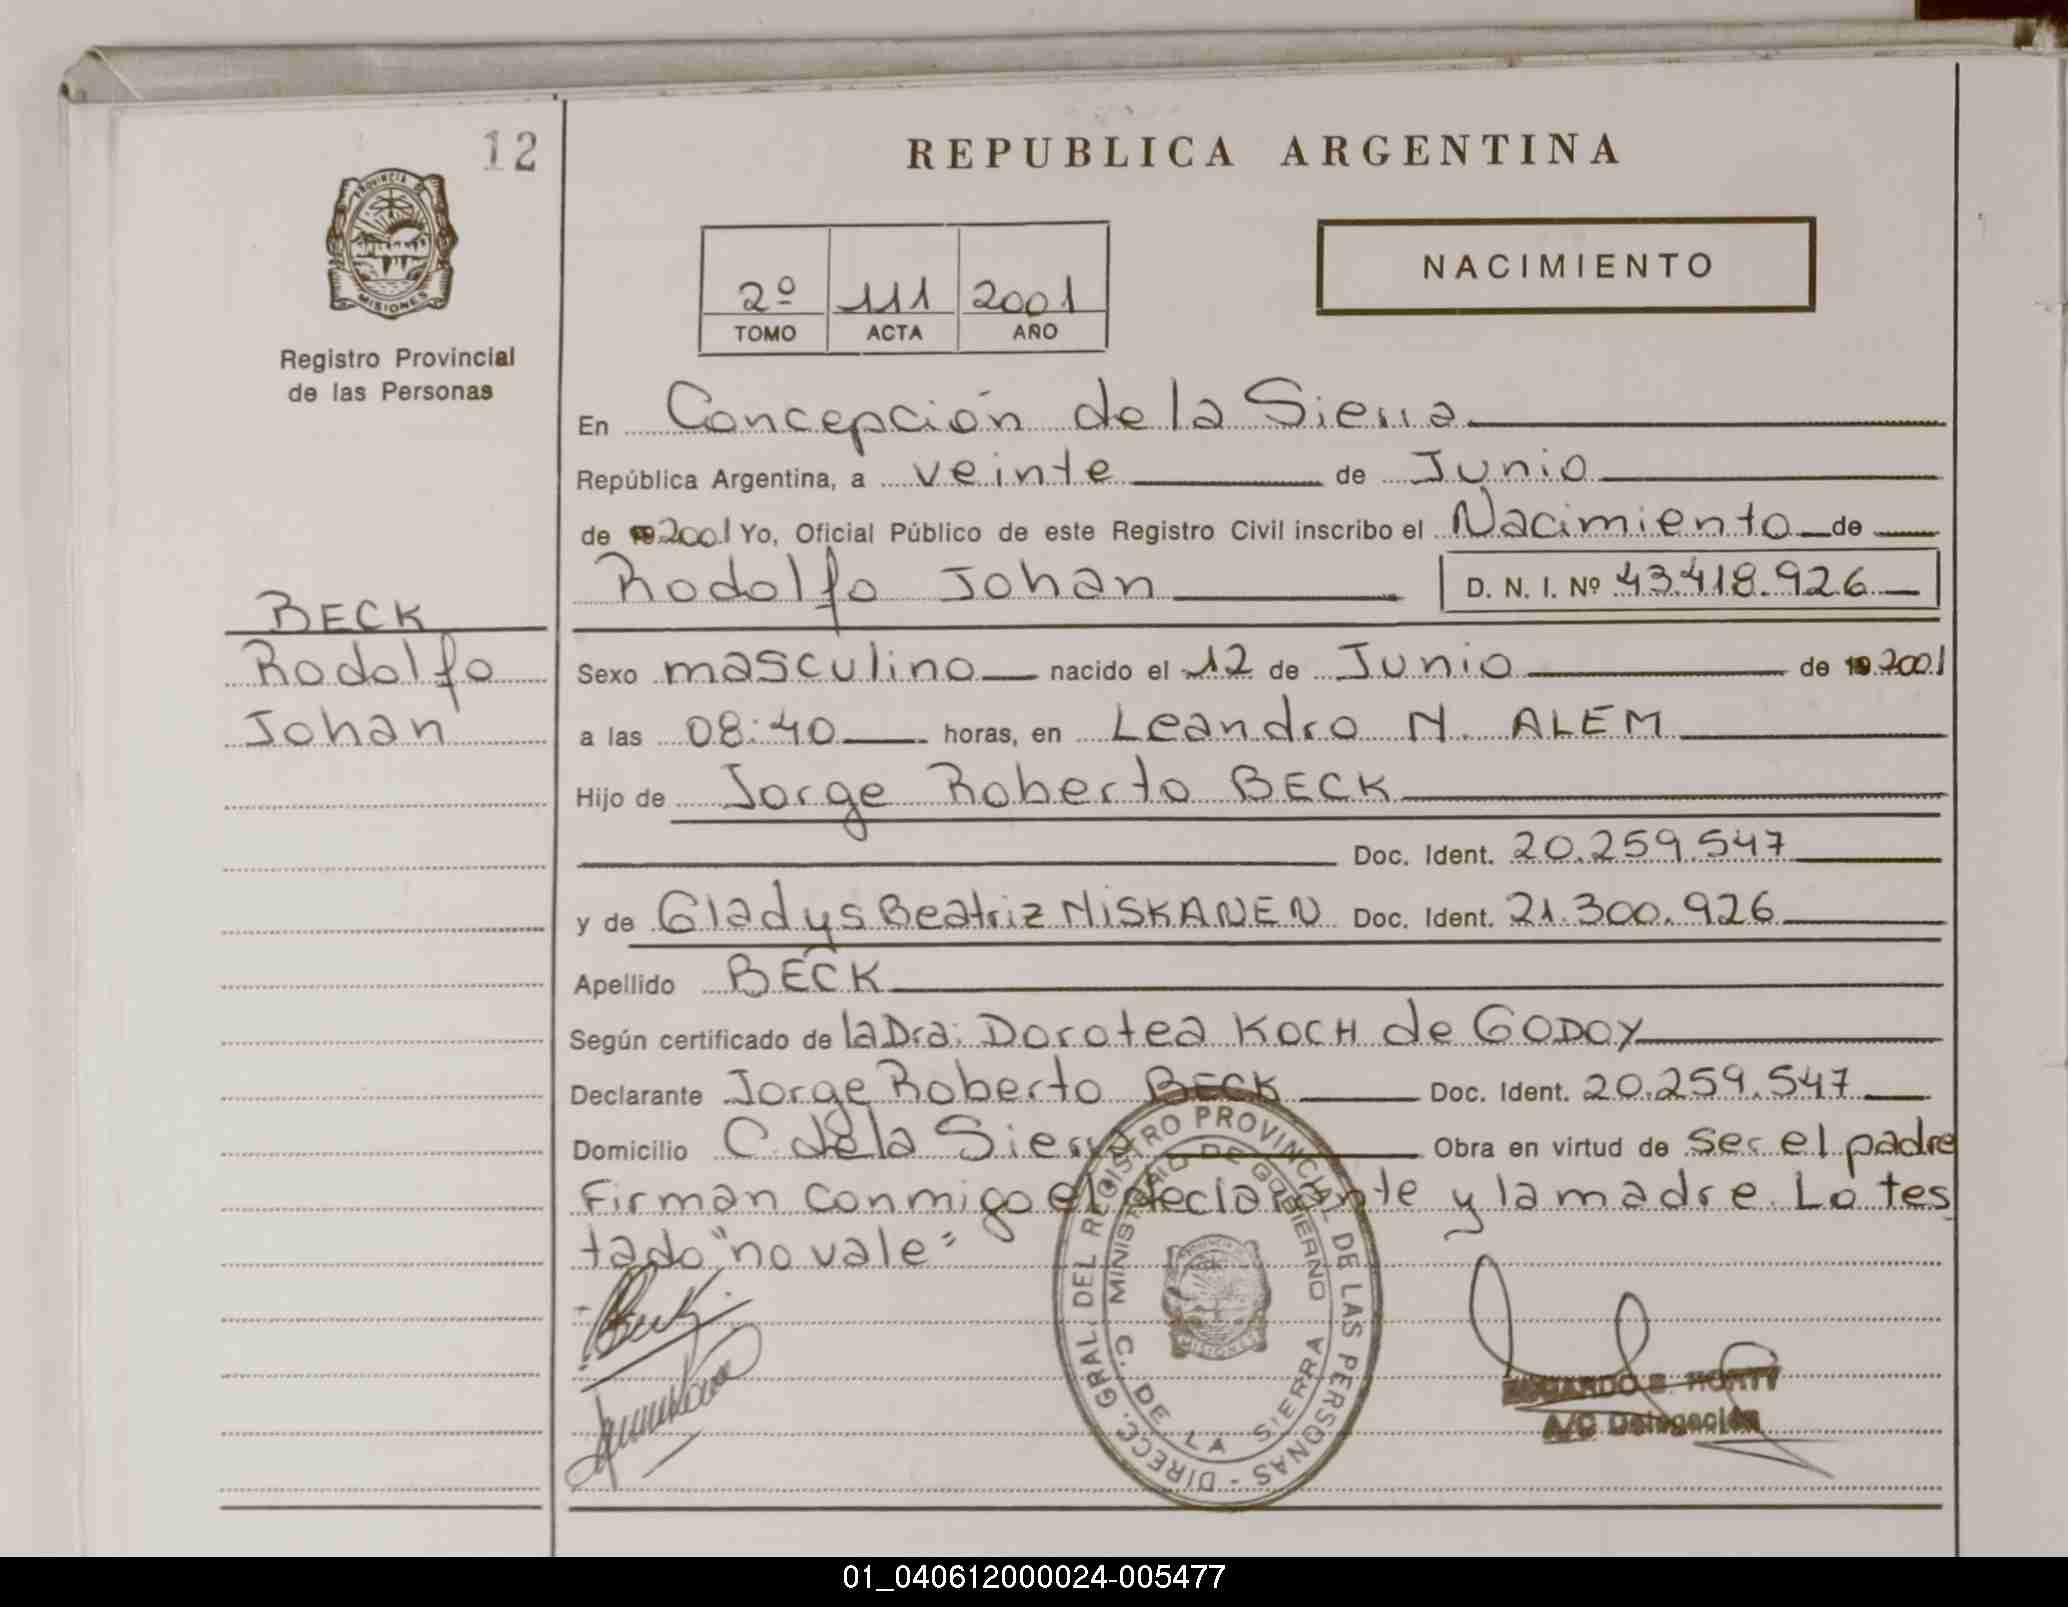 12
REPUBLICA ARGENTINA
PROVINCIA DE
MISIONES
Registro Provincial
de las Personas
2º 111 2001
TOMO ACTA AÑO
NACIMIENTO
En Concepción de la Sierra
República Argentina, a veinte de Junio
de 2001 Yo, Oficial Público de este Registro Civil inscribo el Nacimiento de
Rodolfo Johan D. N. I. Nº 43.418.926
BECK
Rodolfo
Johan
Sexo masculino nacido el 12 de Junio de 2001
a las 08:40 horas, en Leandro N. ALEM
Hijo de Jorge Roberto BECK
Doc. Ident. 20.259.547
y de Gladys Beatriz NISKANEN Doc. Ident. 21.300.926
Apellido BECK
Según certificado de la Dra: Dorotea KOCH de GODOY
Declarante Jorge Roberto BECK Doc. Ident. 20.259.547
Domicilio C. de la Sierra Obra en virtud de ser el padre
Firman conmigo el declarante y la madre. Lo tes
tado "no vale"
Beck
DIRECC. GRAL. DEL REGISTRO PROVINCIAL DE LAS PERSONAS -
MINISTERIO DE GOBIERNO
C. DE LA SIERRA
PROVINCIA DE
MISIONES
EDUARDO
A/C Delegación
01_040612000024-005477